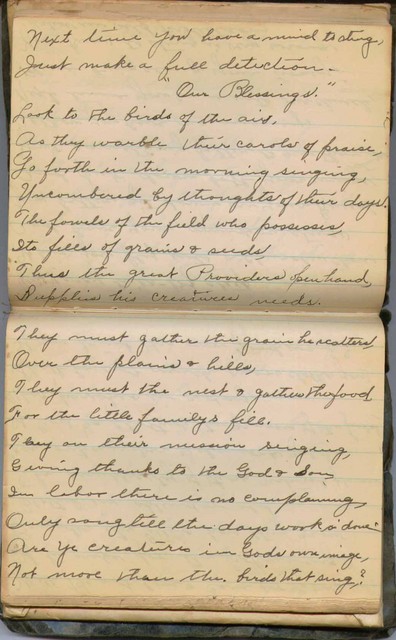 Next time you have a mind to sing,
Just make a full detection.
"Our Blessings."
Look to the birds of the air,
As they warble their carols of praise;
Go forth in the morning singing,
Uncumbered by thoughts of their days.
The fowels of the field who possesses,
Its fills of grains & seeds,
Thus the great Providers open hand,
Supplies his creatures needs.
They must gather the grain he scatters,
Over the plains & hills,
They must the nest & gather the food
For the little family's fill.
They on their mission singing,
Giving thanks to the God & Son,
In labor there is no complaining,
Only song till the days work is done.
Are ye creatures in Gods own image,
Not more than the birds that sing,?